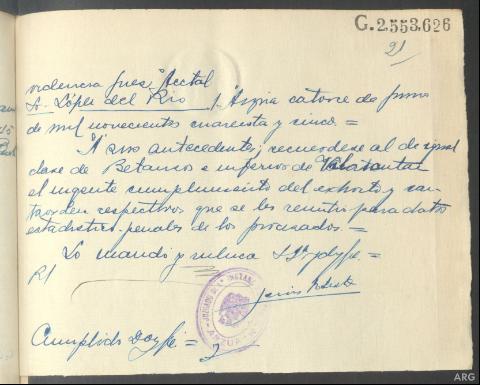 G.2.553.626
21
Providencia Juez Acctal
Sr. López del Rio / Arzúa catorce de junio
de mil novecientos cuarenta y cinco =
A sus antecedentes; recuerdese al de igual
clase de Betanzos e inferior de
el urgente cumplimiento del exhorto y car-
ta orden respectivos que se les remitió para datos
estadistico-penales de los procesados. =
Lo mandó y rubrica S Sª doy fe =
R/
JUZGADO DE 1ª INSTANCIA
ARZUA
Cumplido Doy fe =
ARG